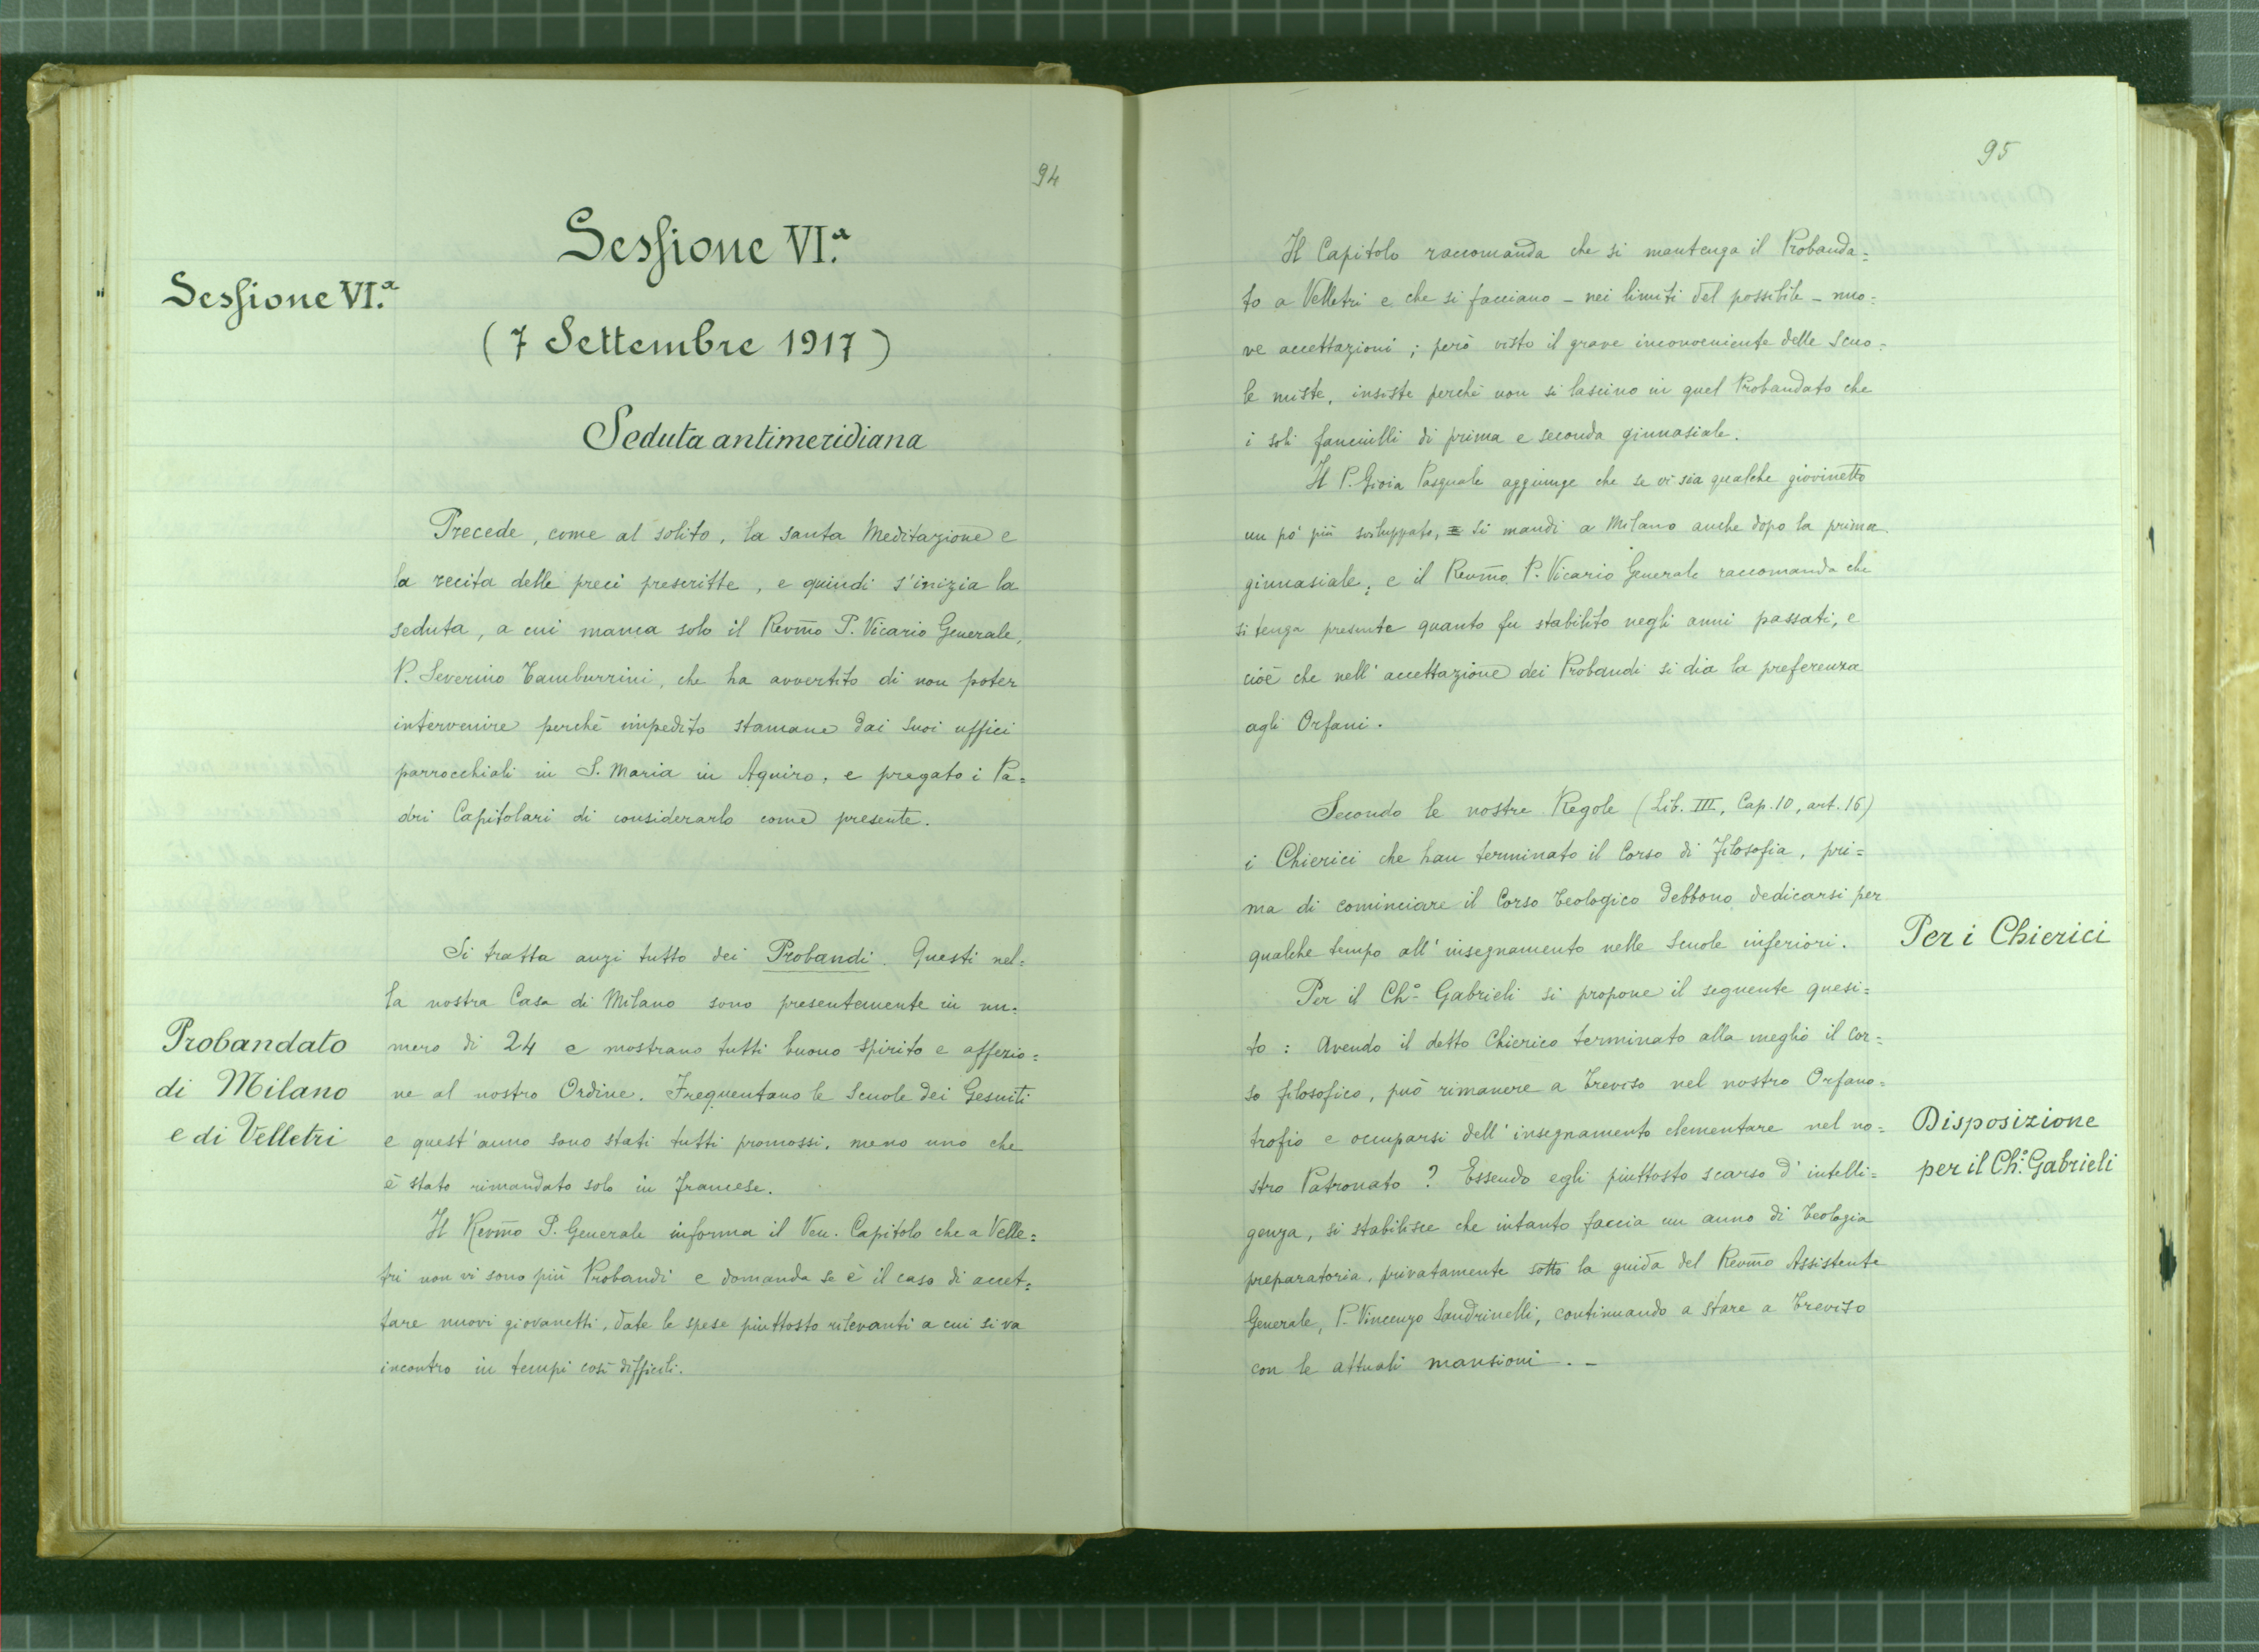 94
Sessione VI.a
Sessione VI.a
(7 Settembre 1917)
Seduta antimeridiana
Precede, come al solito, la santa Meditazione e
la recita delle preci prescritte, e quindi s'inizia la
seduta, a cui manca solo il Revmo P. Vicario Generale,
P. Severino Tamburrini, che ha avvertito di non poter
intervenire perchè impedito stamane dai suoi uffici
parrocchiali in S. Maria in Aquiro, e pregato i Pa=
dri Capitolari di considerarlo come presente.
Si tratta anzi tutto dei Probandi. Questi nel=
la nostra Casa di Milano sono presentemente in nu=
mero di 24 e mostrano tutti buono spirito e affezio=
ne al nostro Ordine. Frequentano le Scuole dei Gesuiti
e quest'anno sono stati tutti promossi, meno uno che
è stato rimandato solo in francese.
Probandato
di Milano
e di Velletri
Il Revmo P. Generale informa il Ven. Capitolo che a Velle=
tri non vi sono più Probandi e domanda se è il caso di accet=
tare nuovi giovanetti, date le spese piuttosto rilevanti a cui si va
incontro in tempi così difficili.
95
Il Capitolo raccomanda che si mantenga il Probanda=
to a Velletri e che si facciano - nei limiti del possibile - nuo=
ve accettazioni; però visto il grave inconveniente delle Scuo=
le miste, insiste perchè non si lascino in quel Probandato che
i soli fanciulli di prima e seconda ginnasiale.
Il P. Gioia Pasquale aggiunge che se vi sia qualche giovinetto
un pò più sviluppato, si mandi a Milano anche dopo la prima
ginnasiale; e il Revmo P. Vicario Generale raccomanda che
si tenga presente quanto fu stabilito negli anni passati, e
cioè che nell'accettazione dei Probandi si dia la preferenza
agli Orfani.
Secondo le nostre Regole (Lib. III, Cap. 10, art. 16)
i Chierici che han terminato il Corso di Filosofia, pri=
ma di cominciare il Corso Teologico debbono dedicarsi per
qualche tempo all'insegnamento nelle Scuole inferiori.
Per i Chierici
Per il Ch.o Gabrieli si propone il seguente quesi=
to: Avendo il detto Chierico terminato alla meglio il Cor=
so filosofico, può rimanere a Treviso nel nostro Orfano=
trofio e occuparsi dell'insegnamento elementare nel no=
stro Patronato? Essendo egli piuttosto scarso d'intelli=
genza, si stabilisce che intanto faccia un anno di Teologia
preparatoria, privatamente sotto la guida del Revmo Assistente
Generale, P. Vincenzo Sandrinelli, continuando a stare a Treviso
con le attuali mansioni. -
Disposizione
per il Ch.o Gabrieli